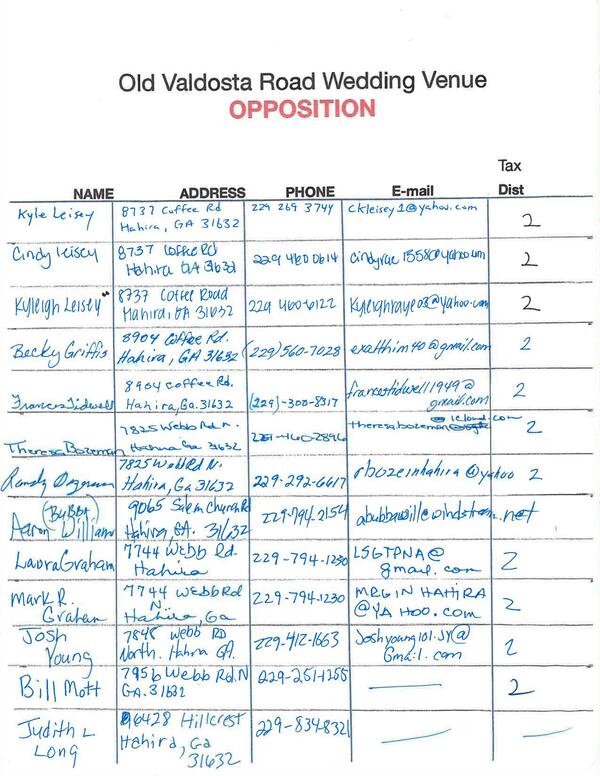 Old Valdosta Road Wedding Venue
OPPOSITION
Tax
NAME ADDRESS PHONE E-mail Dist
Kyle Leisey 8737 Coffee Rd 229 269 3744 ckleisey1@yahoo.com 2
Hahira, GA 31632
Cindy Leisey 8737 Coffee Rd 229 460 0614 2
Hahira GA 31632
Kyleigh Leisey 8737 Coffee Road 229 460-6122 Kyleighraye03@yahoo.com 2
Hahira, GA 31632
Becky Griffis 8904 Coffee Rd. (229)560-7028 exalthim40@gmail.com 2
Hahira, GA 31632
Frances Tidwell 8904 Coffee Rd. (229)-300-8317 francestidwell1949@ 2
Hahira, Ga. 31632 gmail.com
Theresa Bozeman 7825 Webb Rd N. theresabozeman@icloud.com 2
Hahira Ga 31632
Randy 7825 Webb Rd N. 229-292-6617 rbozeinhahira@yahoo 2
Hahira, Ga 31632
(Bubba) 9065 Salem Church Rd 229-794-2154
Aaron Williams Hahira, GA. 31632
Laura Graham 7744 Webb Rd. 229-794-1230 LSGTPNA@ 2
Hahira gmail.com
Mark R. 7744 Webb Rd 229-794-1230 MRGINHAHIRA 2
Graham N. Hahira, Ga @YAHOO.COM
Josh 7848 Webb RD 229-412-1663 Joshyoung101.JY@ 2
Young North. Hahira GA. Gmail.com
Bill Mott 7956 Webb Rd. N 229-251-1255 2
GA. 31632
Judith L 6428 Hillcrest 229-834-8321
Long Hahira, Ga
31632